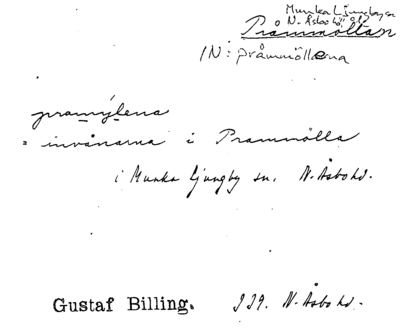 Munka Ljungby sn
N. Åsbo hd
Pråmmöllan
IN: pråmmöllena
pramýlena
= invånarna i Prammölla
i Munka Ljungby sn. N. Åsbo hd.
Gustaf Billing. 339. N. Åsbo hd.